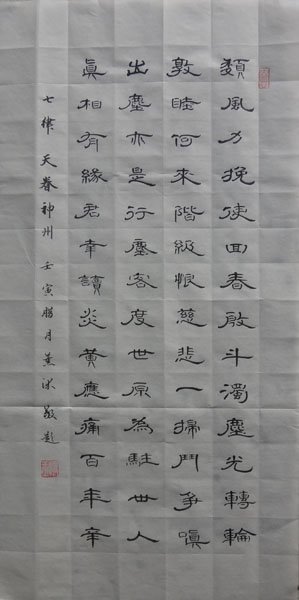 頹風力挽使回春斗濁塵光轉輪
敦睦何來階級恨慈悲一掃鬥爭嗔
出塵亦是行塵客度世原為駐世人
眞相有緣君幸讀炎黃應痛百年辛
七律 天眷神州 壬寅腊月